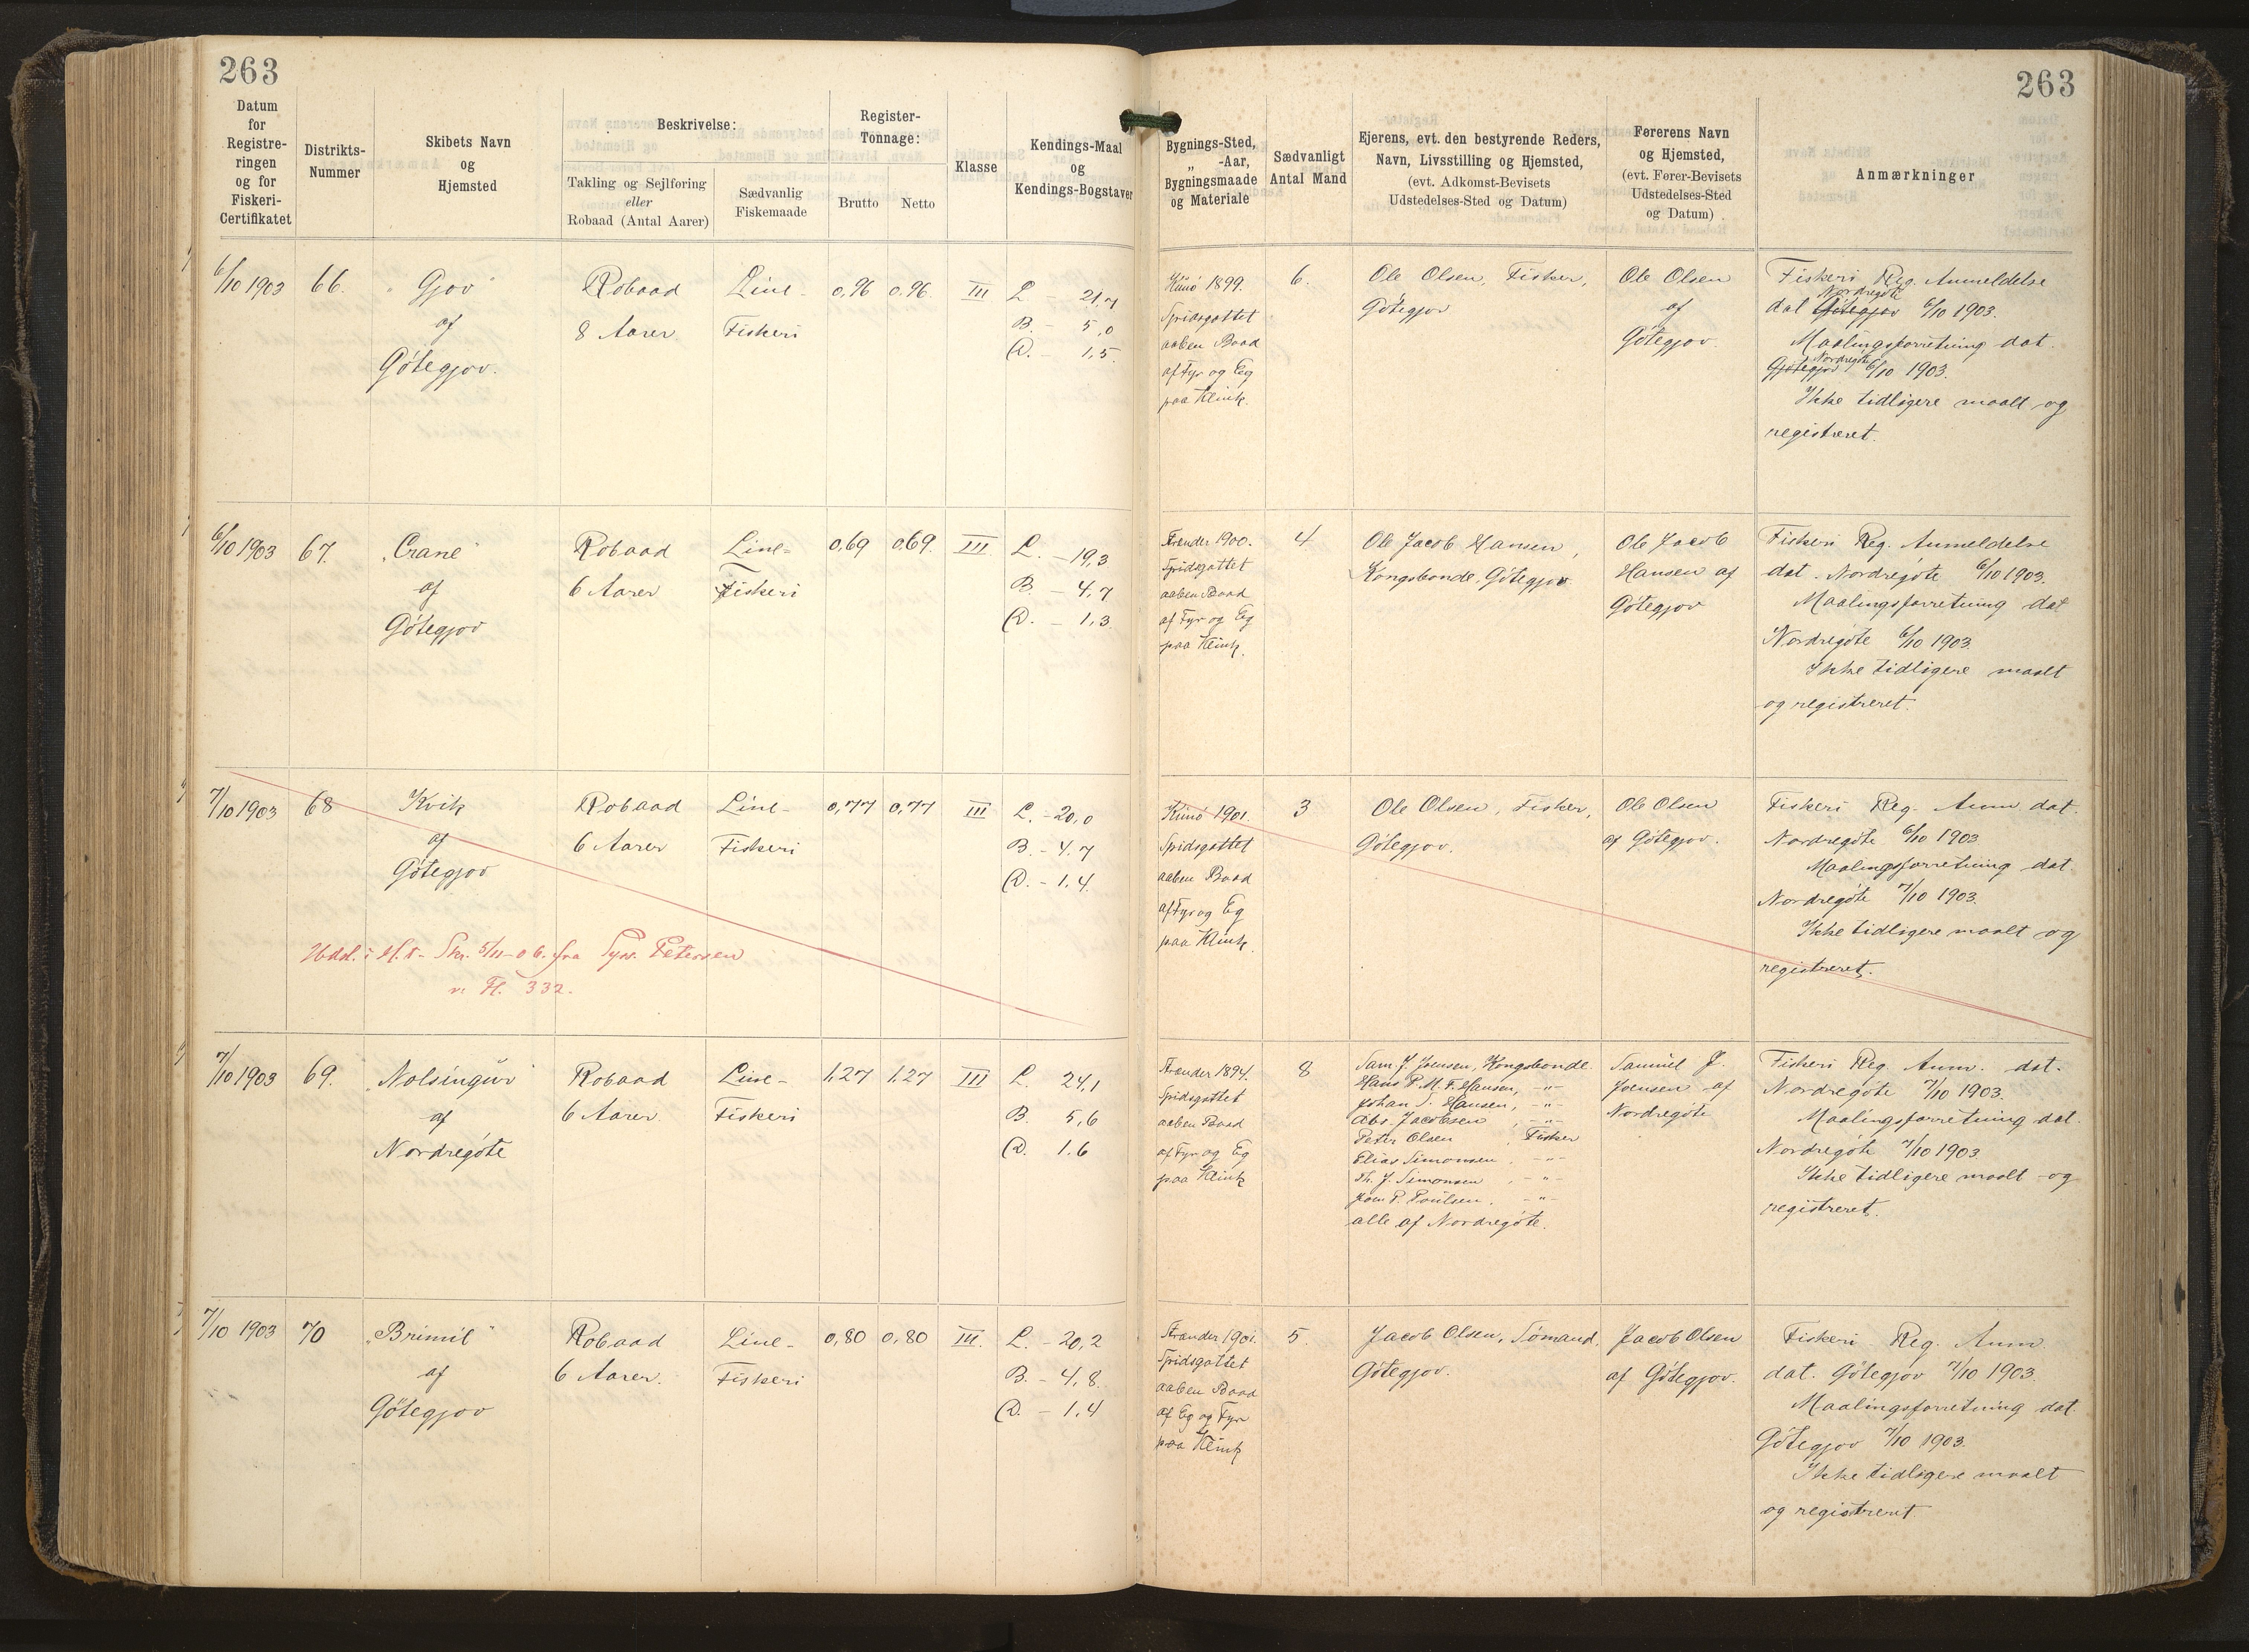 263
263
Datum
for
Registre-
ringen
og for
Fiskeri-
Certifikatet
Distrikts-
Nummer
Skibets Navn
og
Hjemsted
Beskrivelse:
Takling og Sejlføring
eller
Robaad (Antal Aarer)
Sædvanlig
Fiskemaade
Register-
Tonnage:
Brutto
Netto
Klasse
Kendings-Maal
og
Kendings-Bogstaver
Bygnings-Sted,
„ -Aar,
Bygningsmaade
og Materiale
Sædvanligt
Antal Mand
Ejerens, evt. den bestyrende Reders,
Navn, Livsstilling og Hjemsted,
(evt. Adkomst-Bevisets
Udstedelses-Sted og Datum)
Førerens Navn
og Hjemsted,
(evt. Fører-Bevisets
Udstedelses-Sted
og Datum)
Anmærkninger
6/10 1903
66.
"Gjov"
af
Götegjov.
Robaad
8 Aarer
Line-
Fiskeri
0,96
0.96.
III
L - 21,7
B. - 5,0
D. - 1,5.
Kunö 1899.
Spidsgattet
aaben Baad
af Fyr og Eg
paa Klink.
6.
Ole Olsen, Fisker,
Götegjov
Ole Olsen
af
Götegjov.
Fiskeri Reg. Anmeldelse
Nordregöte
dat Götegjov 6/10 1903.
Maalingsforretning dat.
Nordregöte
Götegjov 6/10 1903.
Ikke tidligere maalt og
registreret.
6/10 1903
67.
"Crane"
af
Götegjov
Robaad
6 Aarer
Line-
Fiskeri
0,69
0,69.
III
L. - 19,3
B. - 4,7
D. - 1,3
Strender 1900.
Spidsgattet
aaben Baad
af Fyr og Eg
paa Klink.
4
Ole Jacob Hansen,
Kongsbonde, Götegjov
Ole Jacob
Hansen af
Götegjov
Fiskeri Reg. Anmeldelse
dat. Nordregöte 6/10 1903.
Maalingsforretning dat
Nordregöte 6/10 1903.
Ikke tidligere maalt
og registreret.
7/10 1903
68
Kvik
af
Götegjov
Robaad
6 Aarer
Line-
Fiskeri
0,77
0,77
III
L. - 20,0
B. - 4.7
D. - 1,4.
Kunö 1901.
Spidsgattet
aaben Baad
af Fyr og Eg
paa Klink.
3
Ole Olsen, Fisker,
Götegjov.
Ole Olsen
af Götegjov.
Fiskeri Reg. Anm. dat.
Nordregöte 6/10 1903
Maalingsforretning dat.
Nordregöte 7/10 1903.
Ikke tidligere maalt og
registreret.
Udsl. i Skr. 5/11-06. fra Sys. Petersen
v. Fl. 332.
7/10 1903
69.
"Nolsingur"
af
Nordregöte
Robaad
6 Aarer.
Line-
Fiskeri
1,27
1,27
III
L. 24,1
B. 5,6
D. 1.6
Strender 1894.
Spidsgattet
aaben Baad
af Fyr og Eg
paa Klink
8
Sam J. Joensen, Kongsbonde.
Hans P. M. F. Hansen, -"-
Johan S. Hansen, -"-
Abs. Jacobsen, -"-
Peter Olsen, Fisker
Elias Simonsen, -"-
Th. J. Simonsen, -"-
Joen P. Poulsen, -"-
alle af Nordregöte.
Samuel J.
Joensen af
Nordregöte
Fiskeri Reg. Anm. dat.
Nordregöte 7/10 1903.
Maalingsforretning dat.
Nordregöte 7/10 1903
Ikke tidligere maalt og
registreret.
7/10 1903
70
"Brimil"
af
Götegjov
Robaad
6 Aarer.
Line-
Fiskeri
0,80
0,80
III.
L. - 20,2
B. - 4,8.
D. - 1,4
Strender 1901.
Spidsgattet
aaben Baad
af Eg og Fyr
paa Klink
5.
Jacob Olsen, Sömand,
Götegjov.
Jacob Olsen
af Götegjov.
Fiskeri Reg. Anm
dat. Götegjov 7/10 1903.
Maalingsforretning dat
Götegjov 7/10 1903.
Ikke tidligere maalt
og registreret